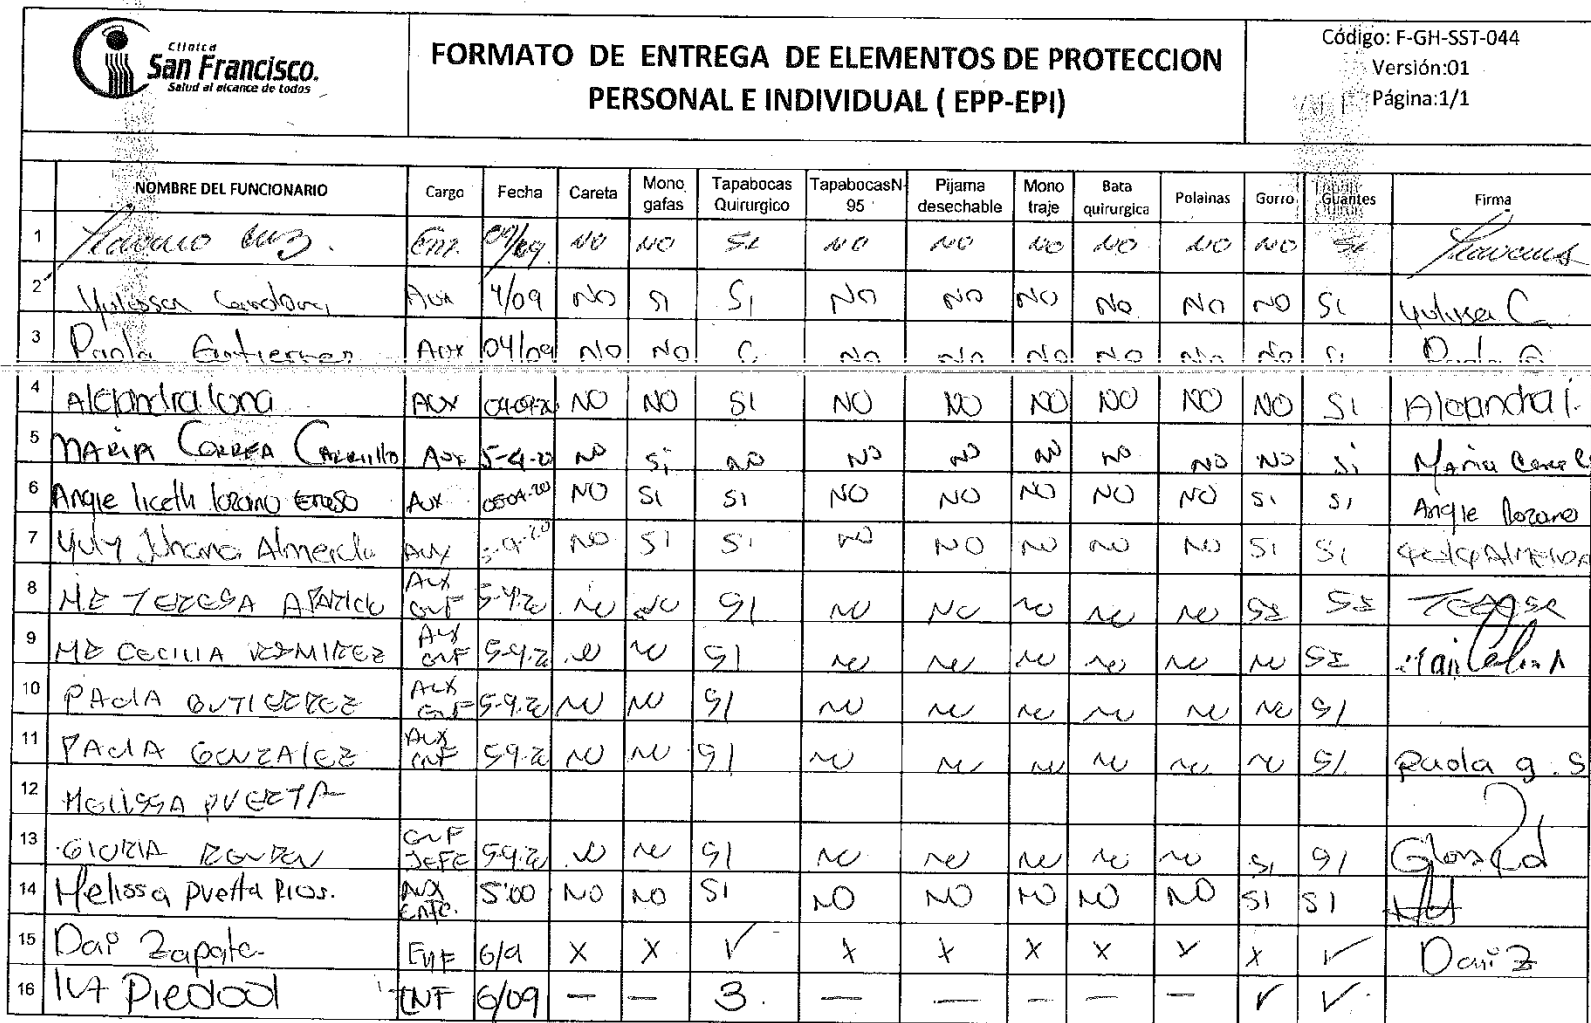 Clínica
San Francisco.
Salud al alcance de todos
FORMATO DE ENTREGA DE ELEMENTOS DE PROTECCION
PERSONAL E INDIVIDUAL ( EPP-EPI)
Código: F-GH-SST-044
Versión:01
Página:1/1
NOMBRE DEL FUNCIONARIO Cargo Fecha Careta Mono gafas Tapabocas Quirurgico TapabocasN-95 Pijama desechable Mono traje Bata quirurgica Polainas Gorro Guantes Firma
1 Enf. 04/09 NO NO SI NO NO NO NO NO NO SI
2 Aux 4/09 NO SI SI NO NO NO NO NO NO SI C
3 Paola Gutierrez Aux 04/09 NO NO NO NO NO NO NO NO SI Paola G
4 Alejandra Aux NO NO SI NO NO NO NO NO NO SI Alejandra
5 MARIA CORREA CARRILLO Aux 5-9-20 NO Si NO NO NO NO NO NO NO Si Maria
6 Angie liceth lozano Aux NO SI SI NO NO NO NO NO SI SI Angie lozano
7 Yuly Johana Almeida Aux 5-9-20 NO SI SI NO NO NO NO NO SI SI
8 MA TERESA APARICIO AUX ENF 5-9-20 NO NO SI NO NO NO NO NO SI SI
9 MA CECILIA AUX ENF 5-9-20 NO NO SI NO NO NO NO NO NO SI
10 PAOLA GUTIERREZ AUX ENF 5-9-20 NO NO SI NO NO NO NO NO NO SI
11 PAOLA GONZALEZ AUX ENF 5-9-20 NO NO SI NO NO NO NO NO NO SI paola g. S
12 MELISSA PUERTA
13 GLORIA RENDON ENF JEFE 5-9-20 NO NO SI NO NO NO NO NO SI SI
14 Melissa Puerta Rios. AUX ENFE. 5:00 NO NO SI NO NO NO NO NO SI SI
15 Zapata ENF 6/9 X X ✓ X X X X X X ✓ Z
16 Piedad ENF 6/09 — — 3. — — — — — ✓ ✓